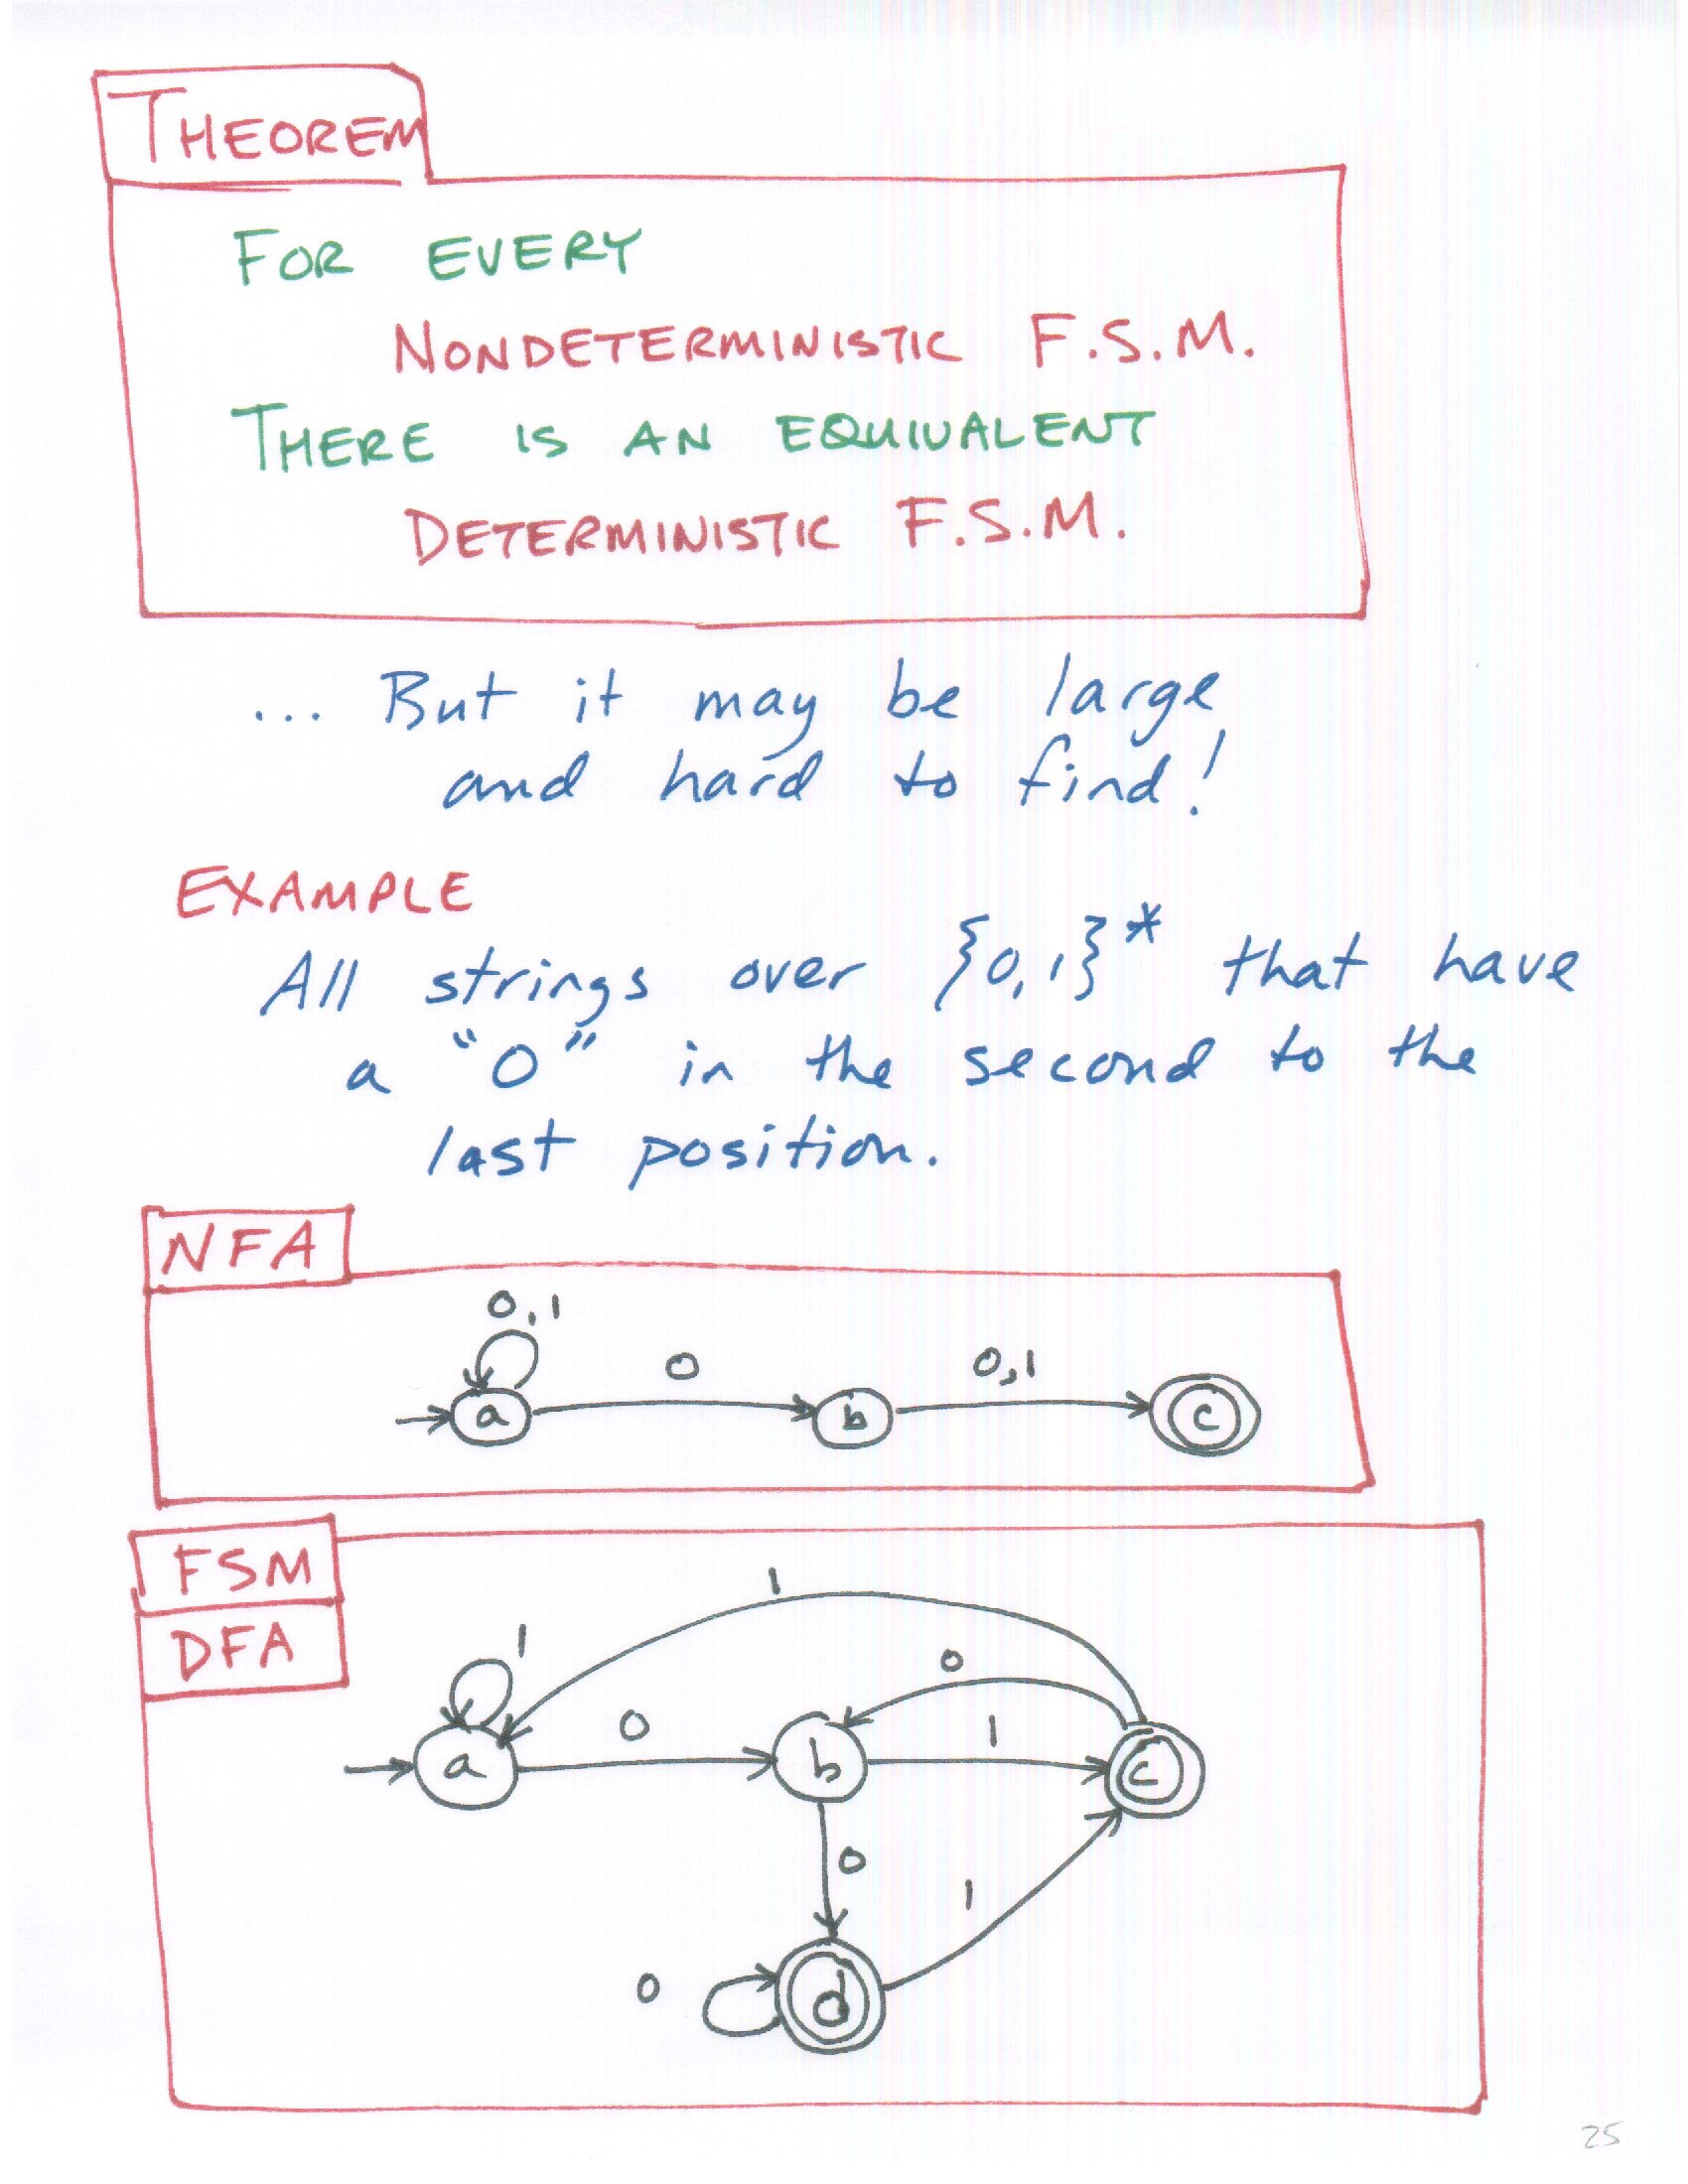 THEOREM
FOR EVERY
NONDETERMINISTIC F.S.M.
THERE IS AN EQUIVALENT
DETERMINISTIC F.S.M.
... But it may be large
and hard to find!
EXAMPLE
All strings over {0,1}* that have
a "0" in the second to the
last position.
NFA
0,1
0
0,1
a
b
c
FSM
DFA
1
1
0
0
1
a
b
c
0
1
0
d
25